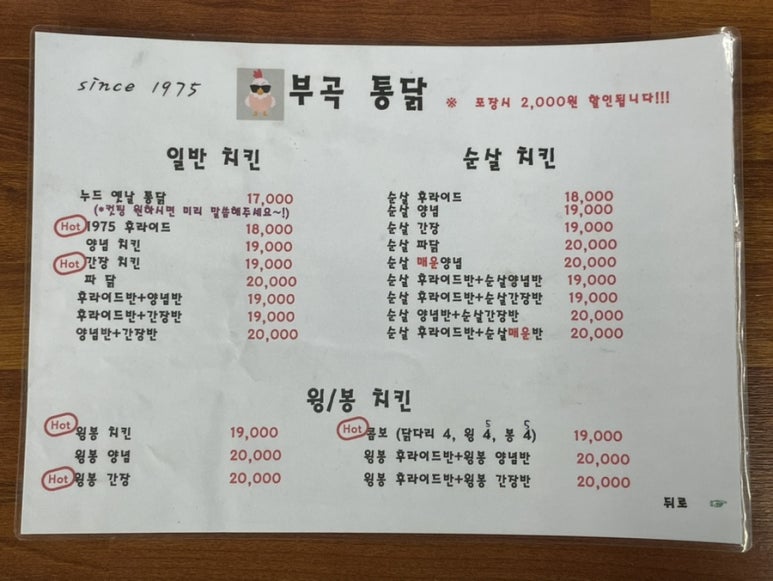 since 1975
부곡 통닭
※ 포장시 2,000원 할인됩니다!!!
일반 치킨
누드 옛날 통닭 17,000
(*컷팅 원하시면 미리 말씀해주세요~!)
Hot 1975 후라이드 18,000
양념 치킨 19,000
Hot 간장 치킨 19,000
파 닭 20,000
후라이드반+양념반 19,000
후라이드반+간장반 19,000
양념반+간장반 20,000
순살 치킨
순살 후라이드 18,000
순살 양념 19,000
순살 간장 19,000
순살 파닭 20,000
순살 매운양념 20,000
순살 후라이드반+순살양념반 19,000
순살 후라이드반+순살간장반 19,000
순살 양념반+순살간장반 20,000
순살 후라이드반+순살매운반 20,000
윙/봉 치킨
Hot 윙봉 치킨 19,000
윙봉 양념 20,000
Hot 윙봉 간장 20,000
5 5
Hot 콤보 (닭다리 4, 윙 4, 봉 4) 19,000
윙봉 후라이드반+윙봉 양념반 20,000
윙봉 후라이드반+윙봉 간장반 20,000
뒤로 ☞